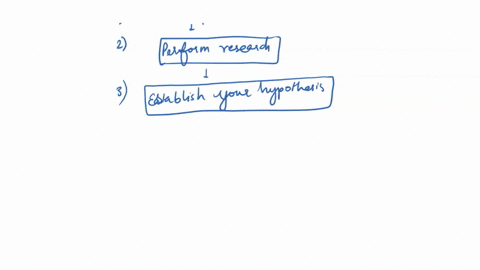 2) Perform research
3) Establish your hypothesis